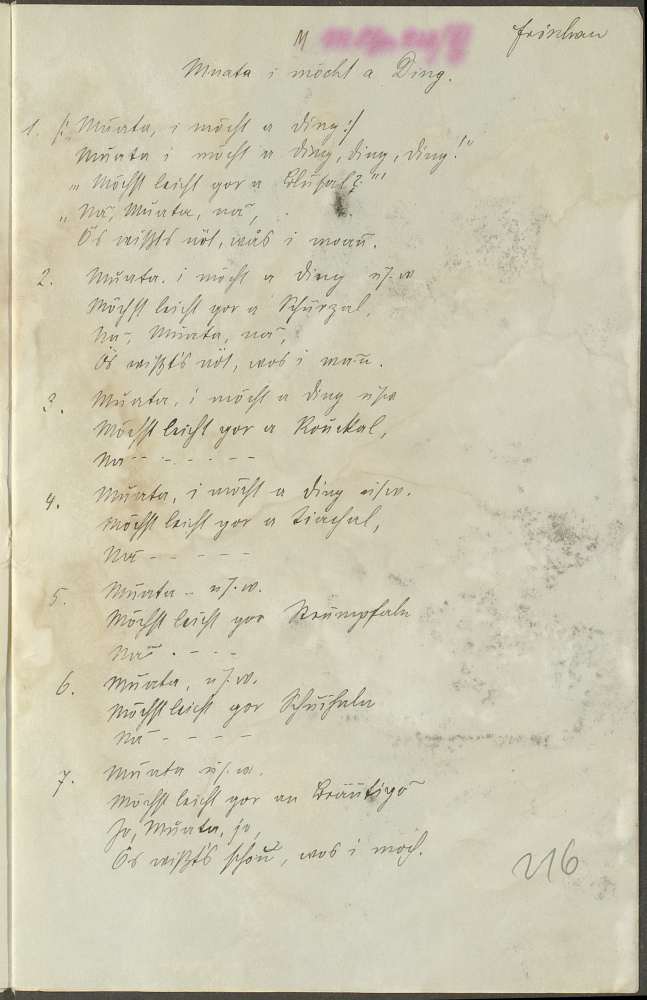 M
Fröschau
Muata i möcht a Ding.
1. /: Muata, i möcht a Ding :/
Muata i möcht a Ding, Ding, Ding!"
"Möchst leicht gor a Blusal?"
"Na, Muata, na,
Ös wißts nöt, wås i moan.
2. Muata. i möcht a Ding usw
Möchst leicht gor a Schürzal,
Na, Muata, na,
Ös wißt's nöt, wos i man.
3. Muata, i möcht a Ding usw
Möchst leicht gor a Röuckal,
Na - - - - - -
4. Muata, i möcht a Ding usw.
Möchst leicht gor a Tiachal,
Na - - - - -
5. Muata - usw.
Möchst leicht gor Strümpfaln
Na - - - -
6. Muata, usw.
Möchst leicht gor Schuihaln
Na - - - -
7. Muata usw.
Möchst leicht gor an Bräutigo
Jo, Muata, jo,
Ös wißt's schon, wos i moch.
216